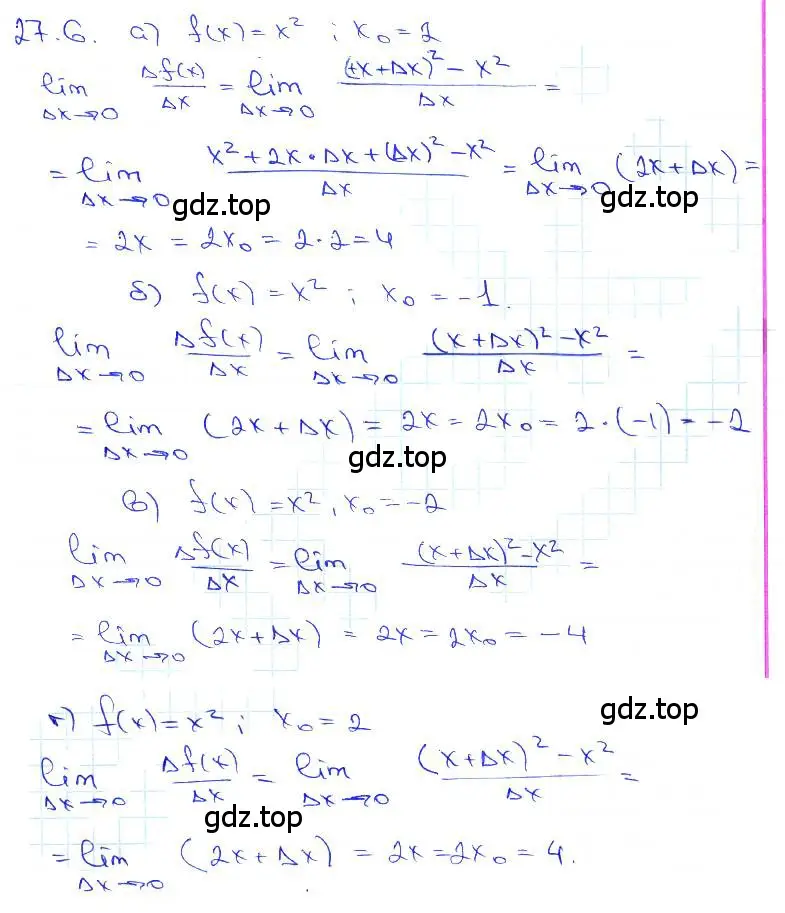 27.6. а) f(x) = x² ; x₀ = 2
lim Δx→0 Δf(x)/Δx = lim Δx→0 ((x+Δx)² − x²)/Δx =
= lim Δx→0 (x² + 2x·Δx + (Δx)² − x²)/Δx = lim Δx→0 (2x + Δx) =
gdz.top gdz.top
= 2x = 2x₀ = 2·2 = 4
б) f(x) = x² ; x₀ = −1.
lim Δx→0 Δf(x)/Δx = lim Δx→0 ((x+Δx)² − x²)/Δx =
= lim Δx→0 (2x + Δx) = 2x = 2x₀ = 2·(−1) = −2
gdz.top
в) f(x) = x², x₀ = −2
lim Δx→0 Δf(x)/Δx = lim Δx→0 ((x+Δx)² − x²)/Δx =
= lim Δx→0 (2x + Δx) = 2x = 2x₀ = −4
gdz.top
г) f(x) = x² ; x₀ = 2
lim Δx→0 Δf(x)/Δx = lim Δx→0 ((x+Δx)² − x²)/Δx =
gdz.top
= lim Δx→0 (2x + Δx) = 2x = 2x₀ = 4.